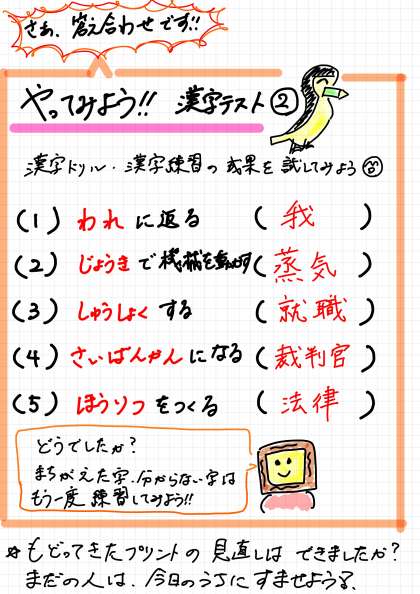 さぁ、答え合わせです!!
やってみよう!! 漢字テスト②
漢字ドリル・漢字練習の成果を試してみよう
(1) われ に返る (我)
(2) じょうき で 機械を動かす (蒸気)
(3) しゅうしょく する (就職)
(4) さいばんかん になる (裁判官)
(5) ほうりつ をつくる (法律)
どうでしたか?
まちがえた字、分からない字は
もう一度 練習してみよう!!
☆もどってきたプリントの 見直しは できましたか?
まだの人は、今日のうちに すませようね。